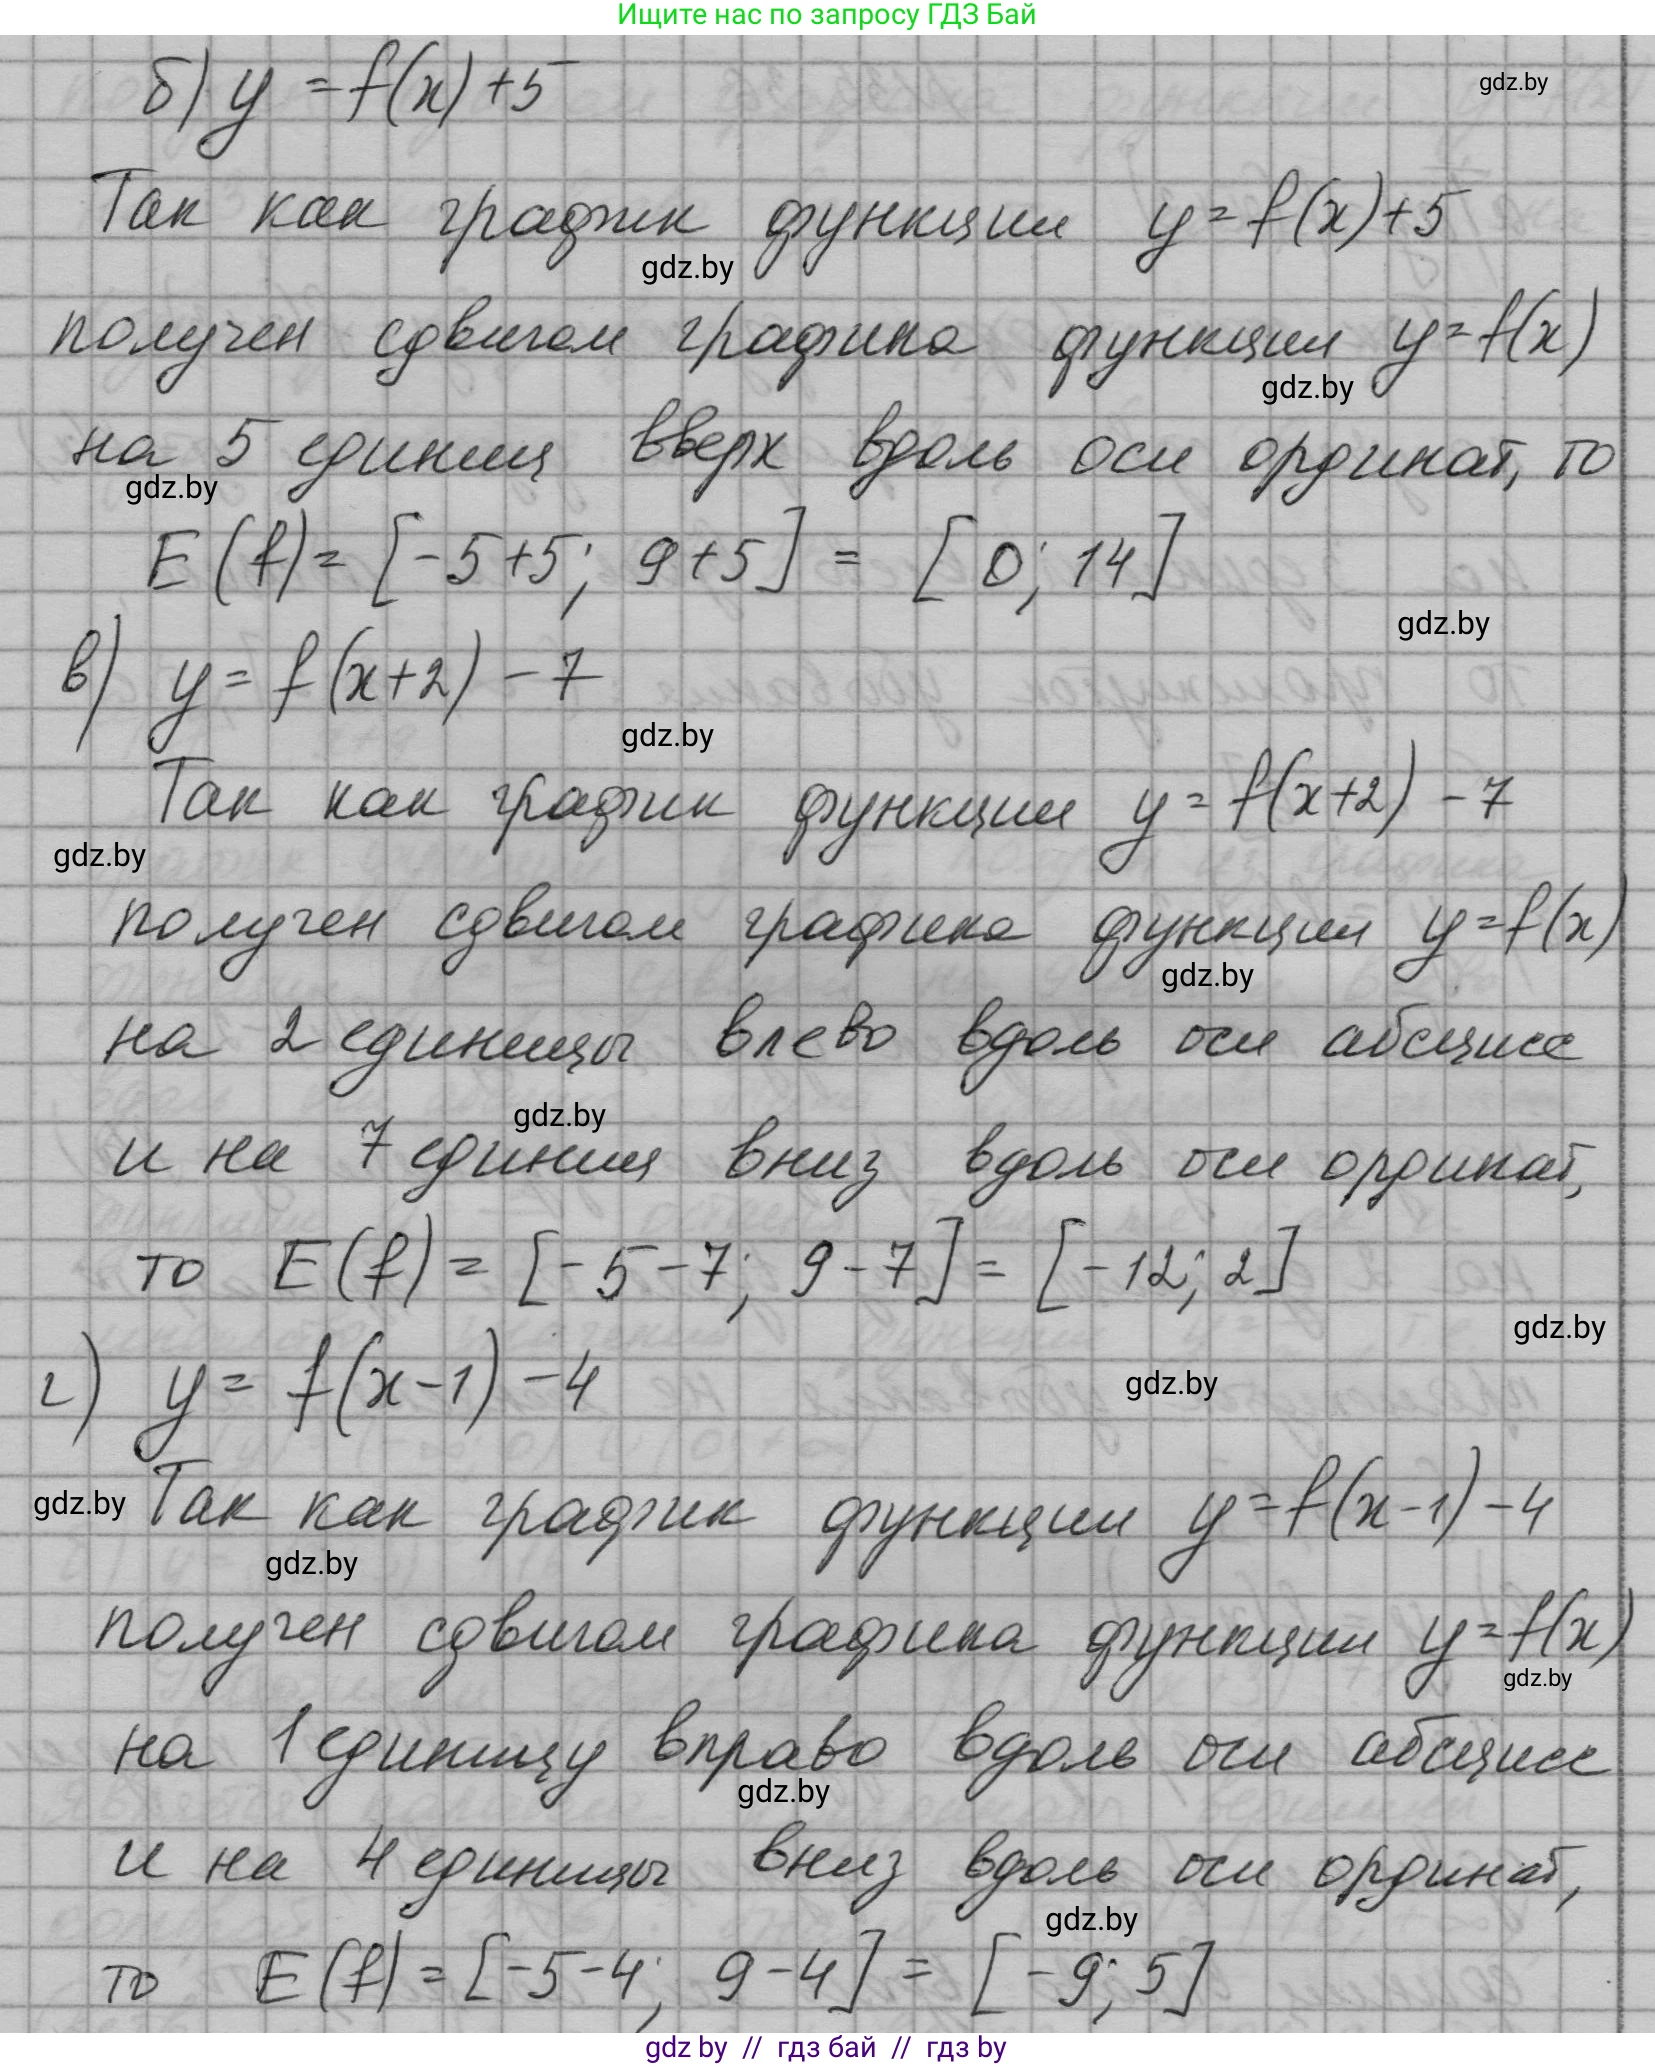 Ищите нас по запросу ГДЗ Бай
б) y = f(x) + 5
gdz.by
Так как график функции y = f(x) + 5
gdz.by
получен сдвигом графика функции y = f(x)
gdz.by
на 5 единиц вверх вдоль оси ординат, то
gdz.by
E(f) = [-5+5; 9+5] = [0; 14]
gdz.by
в) y = f(x+2) - 7
gdz.by
Так как график функции y = f(x+2) - 7
gdz.by
получен сдвигом графика функции y = f(x)
gdz.by
на 2 единицы влево вдоль оси абсцисс
gdz.by
и на 7 единиц вниз вдоль оси ординат,
то E(f) = [-5-7; 9-7] = [-12; 2]
gdz.by
г) y = f(x-1) - 4
gdz.by
gdz.by Так как график функции y = f(x-1) - 4
gdz.by
получен сдвигом графика функции y = f(x)
gdz.by
на 1 единицу вправо вдоль оси абсцисс
gdz.by
и на 4 единицы вниз вдоль оси ординат,
gdz.by
то E(f) = [-5-4; 9-4] = [-9; 5]
gdz by // гдз бай // гдз by